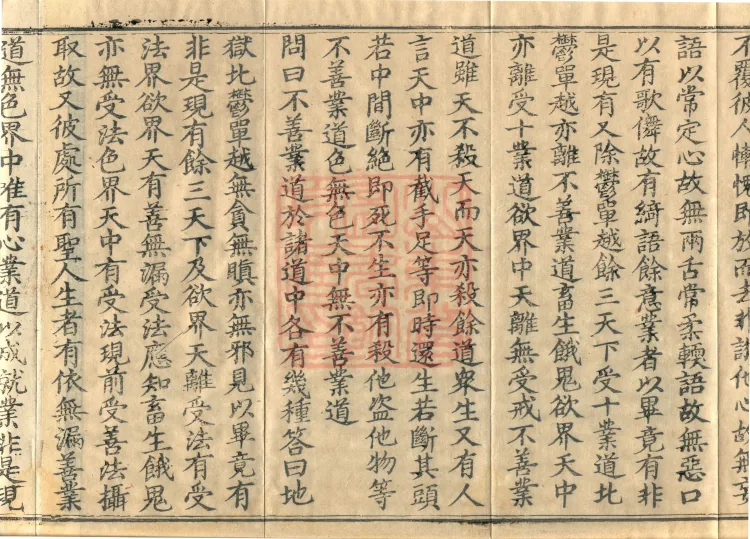 不覆彼人慚愧即放而去非誑他心故無妄
語以常定心故無兩舌常柔輭語故無惡口
以有歌儛故有綺語餘意業者以畢竟有非
是現有又除鬱單越餘三天下受十業道北
鬱單越亦離不善業道畜生餓鬼欲界天中
亦離受十業道欲界中天離無受戒不善業
道雖天不殺天而天亦殺餘道衆生又有人
言天中亦有截手足等即時還生若斷其頭
若中間斷絕即死不生亦有殺他盜他物等
不善業道色無色天中無不善業道
問曰不善業道於諸道中各有幾種答曰地
獄比鬱單越無貪無瞋亦無邪見以畢竟有
非是現有餘三天下及欲界天離受法有受
法界欲界天有善無漏受法應知畜生餓鬼
亦無受法色界天中有受法現前受善法攝
取故又彼處所有聖人生者有依無漏善業
道無色界中唯有心業道以成就業非是現